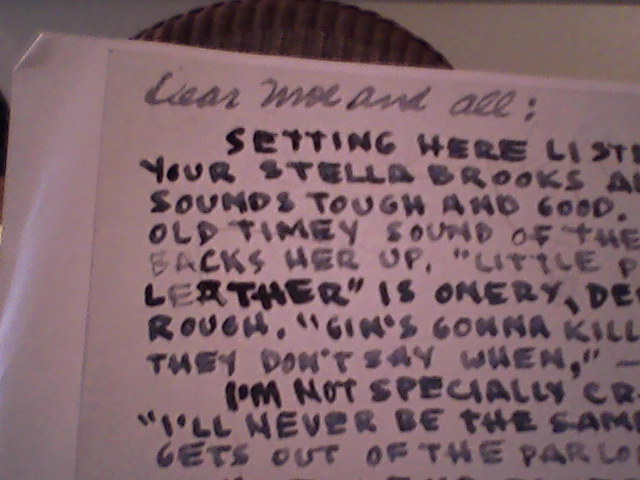 Dear Moe and all:
SETTING HERE
YOUR STELLA BROOKS
SOUNDS TOUGH AND GOOD.
OLD TIMEY SOUND OF THE
BACKS HER UP. "LITTLE
LEATHER" IS ONERY,
ROUGH. "GIN'S GONNA KILL
THEY DON'T SAY WHEN,"—
I'M NOT SPECIALLY
"I'LL NEVER BE THE SAME
GETS OUT OF THE